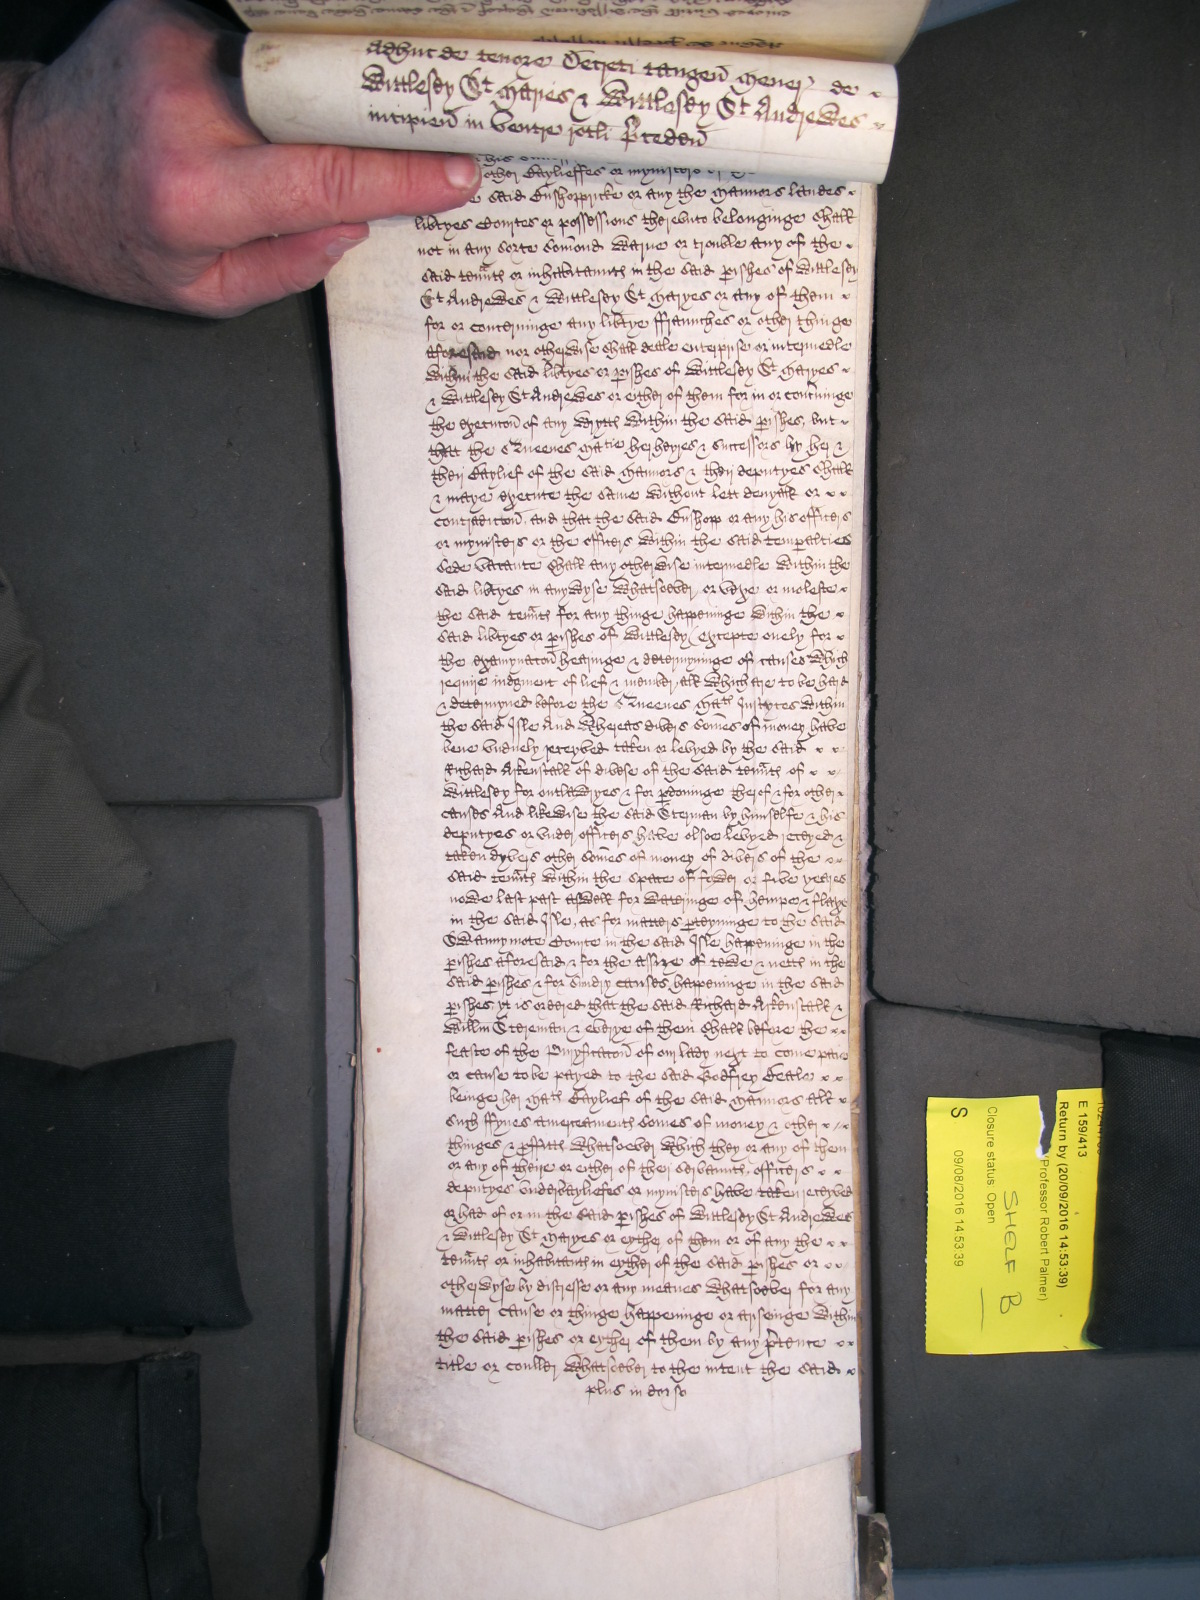 Adhuc de tenore Decreti tangen Maner de
Wittlesey St Maries & Wittlesey St Andrewes
incipien in ventre rotli predcn
other Baylieffes or mynisters
said Busshoppricke or any the Mannors landes
libtyes Comites or possessions therevnto belonginge shall
not in any sorte Somond Warne or trouble any of the
said tennts or inhabitannts in the said pishes of Wittlesey
St Andrewes & Wittlesey St Maryes or any of them
for or concerninge any libtye ffraunches or other thinge
aforesaid nor otherwise shall deale enterprise or intermedle
within the said libtyes or pishes of Wittlesey St Maryes
& Wittlesey St Andrewes or either of them for in or concninge
the execucon of any wrytt within the said pishes, but
that the Queenes Matie her heyres & successors by her &
their Baylief of the said Mannors & their deputyes shall
& maye execute the same without lett denyall or
contradiccon, and that the said Busshopp or any his officers
or mynisters or the officers within the said tempalties
Sede vacante shall any otherwise intermedle within the
said libtyes in anywyse whatsoever, or vexe or moleste
the said tennts for any thinge happeninge within the
said libtyes or pishes of Wittlesey, excepte onely for
the examynacon hearinge & determyninge of causes which
require iudgment of lief & member, all which are to be had
& determyned before the Queenes Mats Justyces within
the said Isle And Whereas divers somes of money have
bene vnduely receyved taken or levyed by the said
Richard Arkenstall of diverse of the said tennts of
Wittlesey for outlawryes & for pdoninge therof & for other
causes And likewise the said Stewman by himselfe & his
deputyes or vnder officers have also levyed receyved &
taken dyvers other somes of money of divers of the
said tennts within the space of fower or five yeares
nowe last past aswell for wateringe of hempe & flaxe
in the said Isle, as for matters pteyninge to the said
Swannymote Courte in the said Isle happeninge in the
pishes aforesaid & for the assize of
said pishes & for sundry causes happeninge in the said
pishes, yt is ordered that the said Richard Arkenstall &
Willm & everye of them shall before the
feaste of the Puryficacon of our lady next to come paie
or cause to be payed to the said Godfrey
beinge her Mats Baylief of the said Mannors all
such ffynes amerceaments somes of money & other
thinges & pffitts whatsoever which they or any of them
or any of their or either of their servannts, officers
deputyes vnderbayliefes or mynisters have taken receyved
or had of or in the said pishes of Wittlesey St Andrewes
& Wittlesey St Maryes or eyther of them or of any the
tennts or inhabitannts in eyther of the said pishes or
otherwyse by distresse or any meanes whatsoever for any
matter cause or thinge happeninge or ariseinge within
the said pishes or eyther of them by any prtence
title or couller whatsoever to the intent the said
plus in dorso
E 159/413
Return by (20/09/2016 14:53:39)
(Professor Robert Palmer)
SHELF B
Closure status: Open
S
09/08/2016 14:53:39